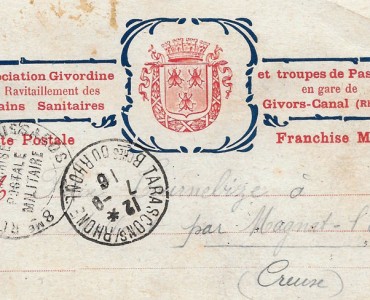 ociation Givordine
et troupes de Pas
Ravitaillement des
en gare de
ains Sanitaires
Givors-Canal (R
te Postale
Franchise M
TARASCON S/ RHÔNE Bches DU RHONE
12 * 8
7
16
POSTALE
MILITAIRE
par Magnat-l'
(Creuse)